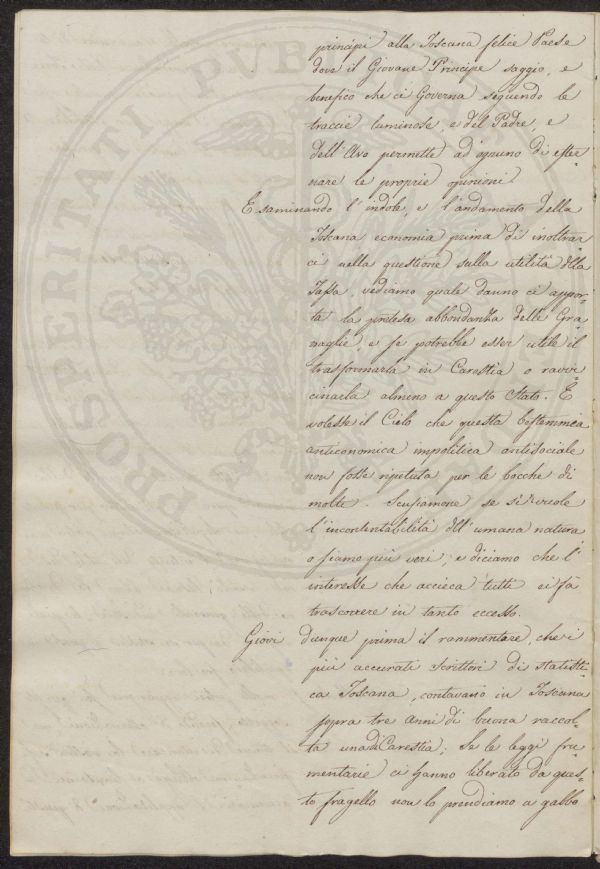 principi alla Toscana felice Paese
dove il Giovane Principe saggio, e
benefico che ci Governa seguendo le
traccie luminose, e del Padre, e
dell'Avo permette ad ognuno di ester
nare le proprie opinioni.
Esaminando l'indole, e l'andamento della
Toscana economia prima di inoltrar
ci nella questione sulla utilità dlla
Tassa, vediamo quale danno ci appor=
ta la pretesa abbondanza delle Gra=
naglie, e se potrebbe esser utile il
trasformarla in Carestia o ravvi
cinarla almeno a questo Stato. E
volesse il Cielo che questa bestemmia
antieconomica impolitica antisociale
non fosse ripetuta per le bocche di
molte. Scusiamone se si vuole
l'incontentabilità dell'umana natura
o siamo più veri, e diciamo che l'
interesse che accieca tutti ci fà
trascorrere in tanto eccesso.
Giovi dunque prima il rammentare, che i
più accurati scrittori di statisti
ca Toscana, contavano in Toscana
sopra tre anni di buona raccol=
ta una di Carestia; Se le leggi fru
mentarie ci hanno liberato da ques=
to fragello non lo prendiamo a gabbo
PROSPERITATI PUB